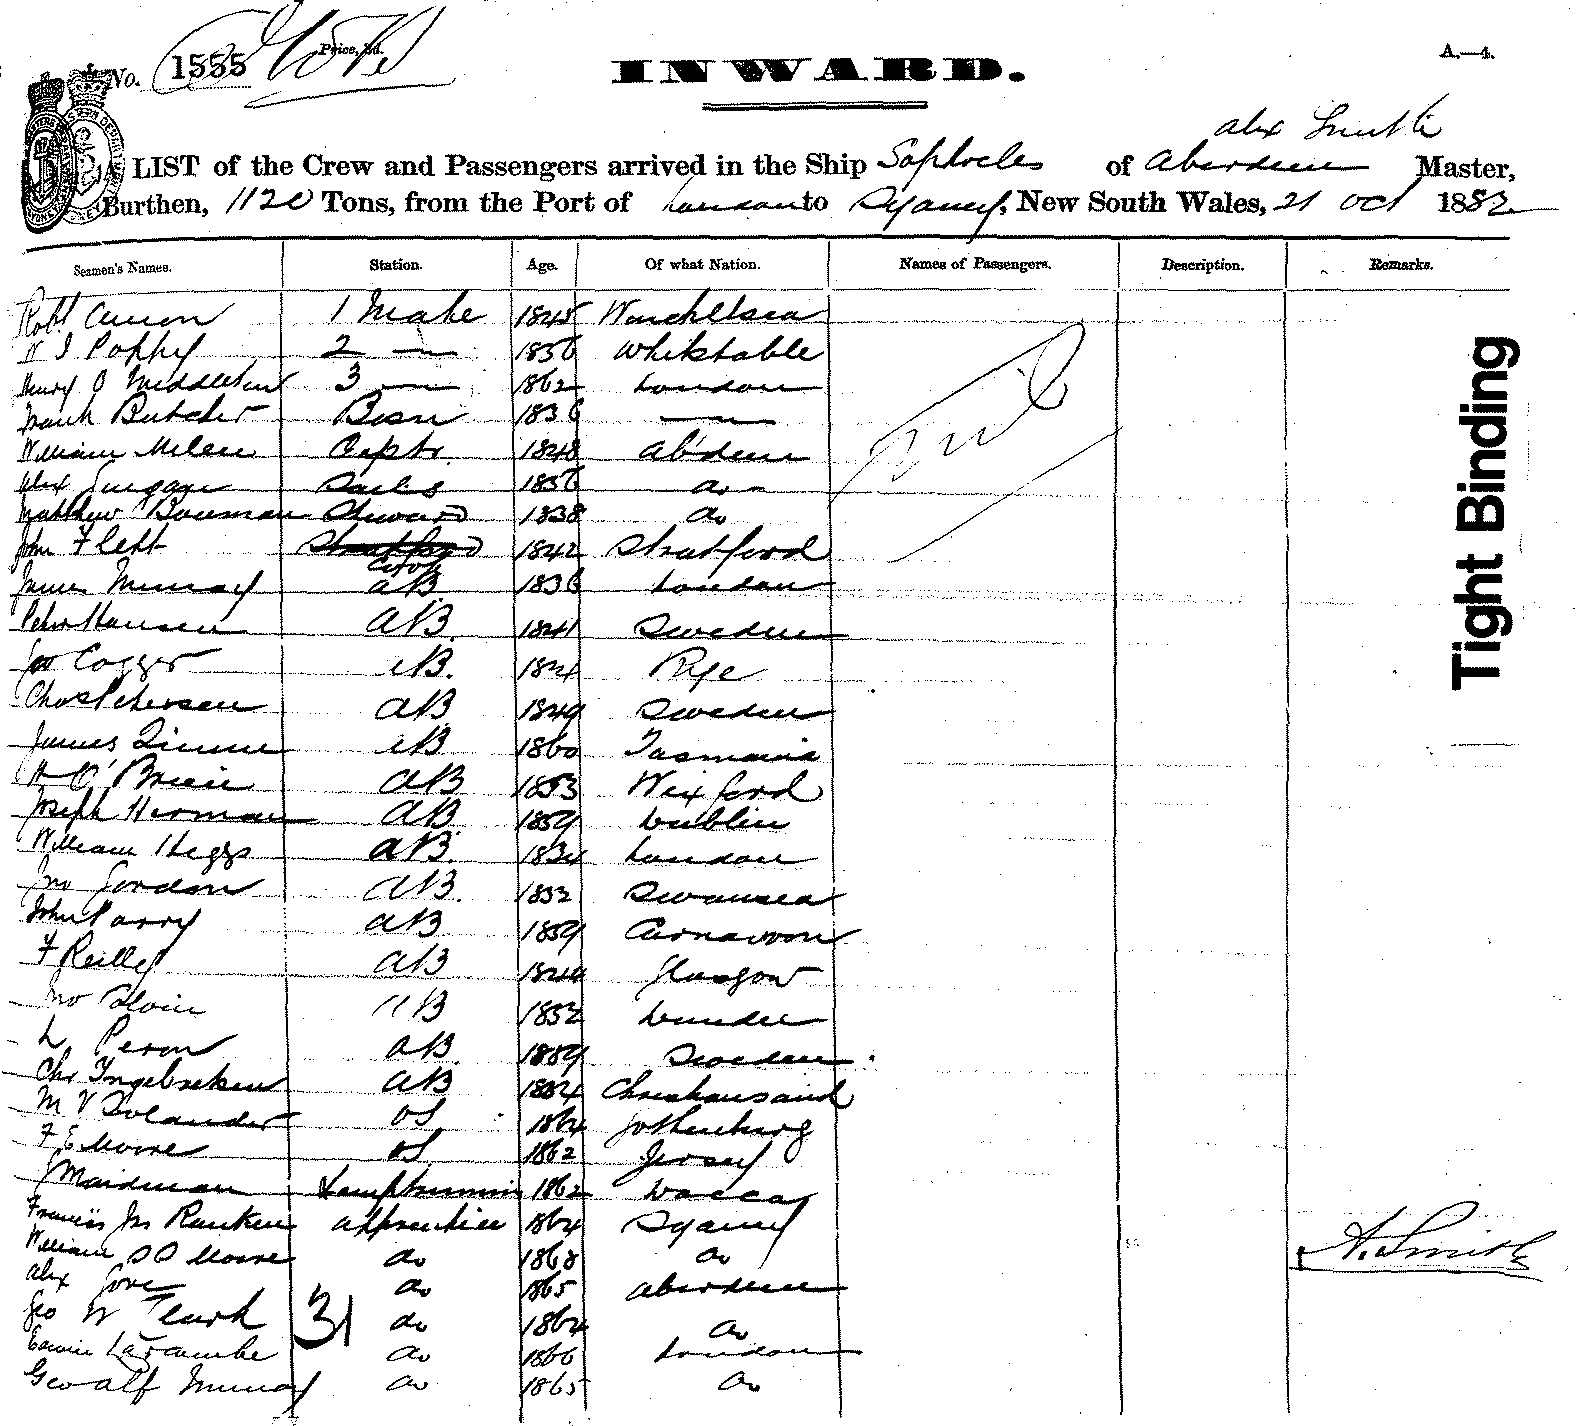 No. 1555
Price, 3d.
A.—4.
INWARD.
Alex Smith
LIST of the Crew and Passengers arrived in the Ship Sophocles of Aberdeen Master,
Burthen, 1120 Tons, from the Port of London to Sydney, New South Wales, 21 Oct 1882
Seamen's Names. Station. Age. Of what Nation. Names of Passengers. Description. Remarks.
Robt 1 Mate 1845 Winchelsea
Poppy 2 — 1856 Whitstable
Henry O Middleton 3 — 1862 London
Nil
Frank Butcher Bosn 1836 —
William Milen Captr. 1848 Abdeen
Alex Sails 1856 Do
Matthew Bowman Steward 1838 Do
John Flett Cook 1842 Stratford
James Murray AB 1836 London
Peter Hansen AB. 1841 Sweden
Cogger AB. 1824 Rye
Chas Petersen AB 1849 Sweden
James AB 1860 Tasmania
H O'Brien AB 1853 Wexford
Joseph Herman AB 1859 Dublin
William Heggs AB. 1834 London
Jno Gordon AB. 1832 Swansea
John Parry AB 1859 Carnavon
F Reilly AB Glasgow
Jno AB 1832 Dundee
L Peron AB. 1859 Sweden
Chr Ingebretsen AB Christiansand
M V Solander OS 1864 Gothenburg
F E Moore OS 1862 Jersey
J Maidman Lamptrimmer 1862 Dacca
Francis Jn Ranken Apprentice 1864 Sydney
William Moore Do 1868 Do
A. Smith
Alex Gove Do 1865 Aberdeen
Geo W do 1864 Do
31
Edwin Larcombe Do 1866 London
Geo Alf Murray Do 1865 Do
Tight Binding